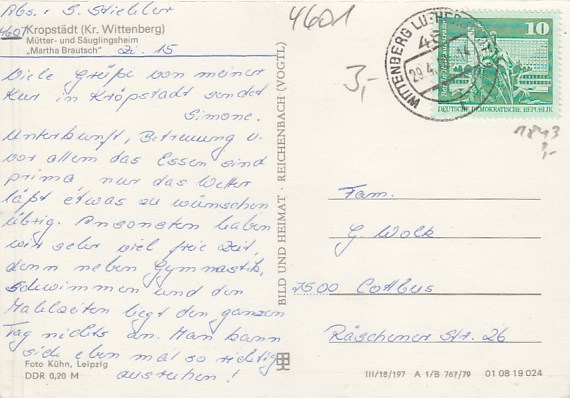 Abs.: S. Stichler
4607 Kropstädt (Kr. Wittenberg)
Mütter- und Säuglingsheim
„Martha Brautsch" Zi. 15
4601
3,-
Viele Grüße von meiner
Kur in Kropstädt sendet
Simone.
Unterkunft, Betreuung u.
vor allem das Essen sind
prima, nur das Wetter
läßt etwas zu wünschen
übrig. Ansonsten haben
wir sehr viel freie Zeit,
denn neben Gymnastik,
schwimmen und den
Mahlzeiten liegt den ganzen
Tag nichts an. Man kann
sich eben mal so richtig
ausruhen!
Foto Kühn, Leipzig
DDR 0,20 M
BILD UND HEIMAT · REICHENBACH (VOGTL)
WITTENBERG LU
29.4.
10
DEUTSCHE DEMOKRATISCHE REPUBLIK
1843
3,-
Fam.
G. Wolk
7500 Cottbus
Räschener Str. 26
III/18/197 A 1/B 767/79 01 08 19 024